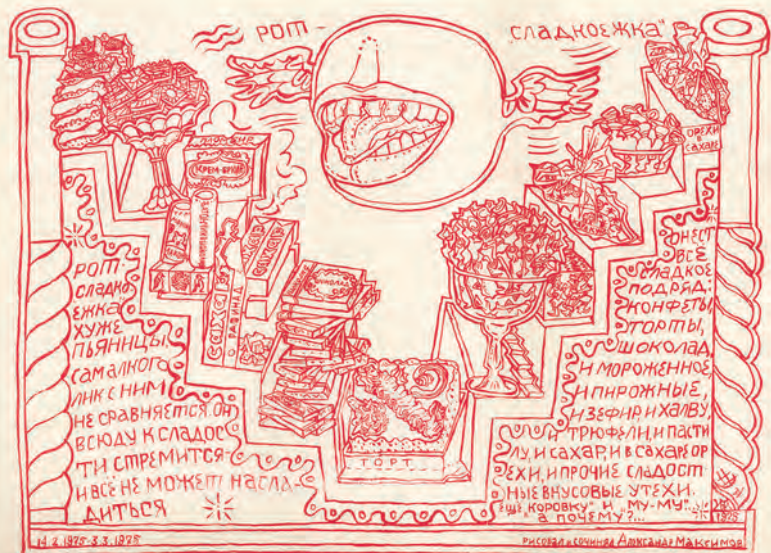 РОТ - „СЛАДКОЕЖКА“
КРЕМ-БРЮЛЕ
САХАР
РАФИНАД
ШОКОЛАД
ТОРТ
ОРЕХИ
В
САХАРЕ
РОТ-
СЛАДКО
ЕЖКА
ХУЖЕ
ПЬЯНИЦЫ
САМ АЛКОГО
ЛИК С НИМ
НЕ СРАВНЯЕТСЯ. ОН
ВСЮДУ К СЛАДОС
ТИ СТРЕМИТСЯ-
И ВСЁ НЕ МОЖЕТ НАСЛА-
ДИТЬСЯ
ОН ЕСТ
ВСЁ
СЛАДКОЕ
ПОДРЯД:
КОНФЕТЫ,
ТОРТЫ,
ШОКОЛАД,
И МОРОЖЕННОЕ
И ПИРОЖНЫЕ,
И ЗЕФИР, И ХАЛВУ,
И ТРЮФЕЛИ, И ПАСТИ
ЛУ, И САХАР, И В САХАРЕ ОР
ЕХИ, И ПРОЧИЕ СЛАДОСТ
НЫЕ ВКУСОВЫЕ УТЕХИ.
ЕЩЁ „КОРОВКУ“ И „МУ-МУ“...
А ПОЧЕМУ?...
1975
14.2.1975-3.3.1975
РИСОВАЛ И СОЧИНЯЛ АЛЕКСАНДР МАКСИМОВ